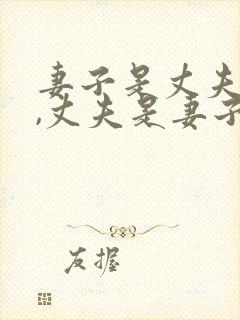 妻子是丈夫
,丈夫是妻子
友握